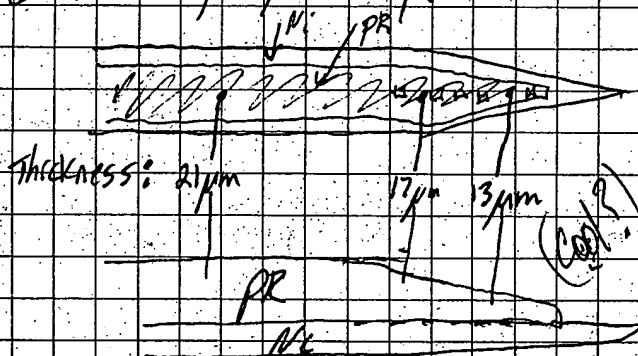 Ni PR
Thickness: 21µm 17µm 13µm
(Cool?)
PR
Ni